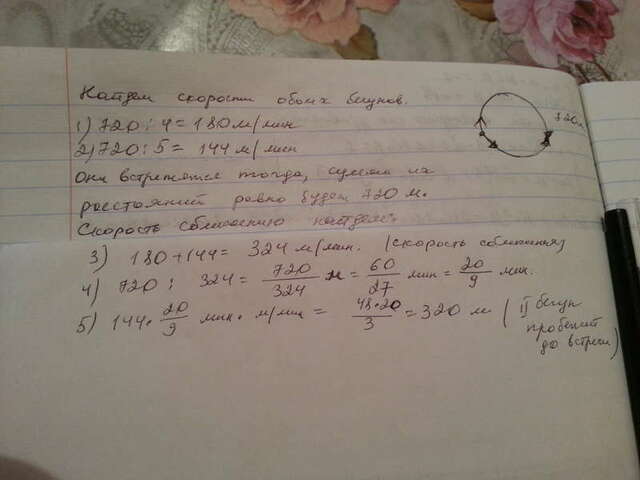 Найдем скорости обоих бегунов.
1) 720 : 4 = 180 м/мин
2) 720 : 5 = 144 м/мин
Они встретятся тогда, сумма их
расстояний равно будет 720 м.
Скорость сближению найдем:
3) 180 + 144 = 324 м/мин. (скорость сближения)
4) 720 : 324 = 720/324 м = 60/27 мин = 20/9 мин.
5) 144 · 20/9 мин · м/мин = 48·20/3 = 320 м ( II бегун
пробежит
до встречи)